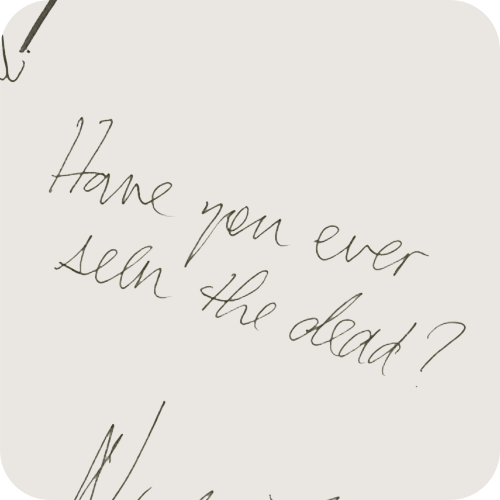 Have you ever
seen the dead?